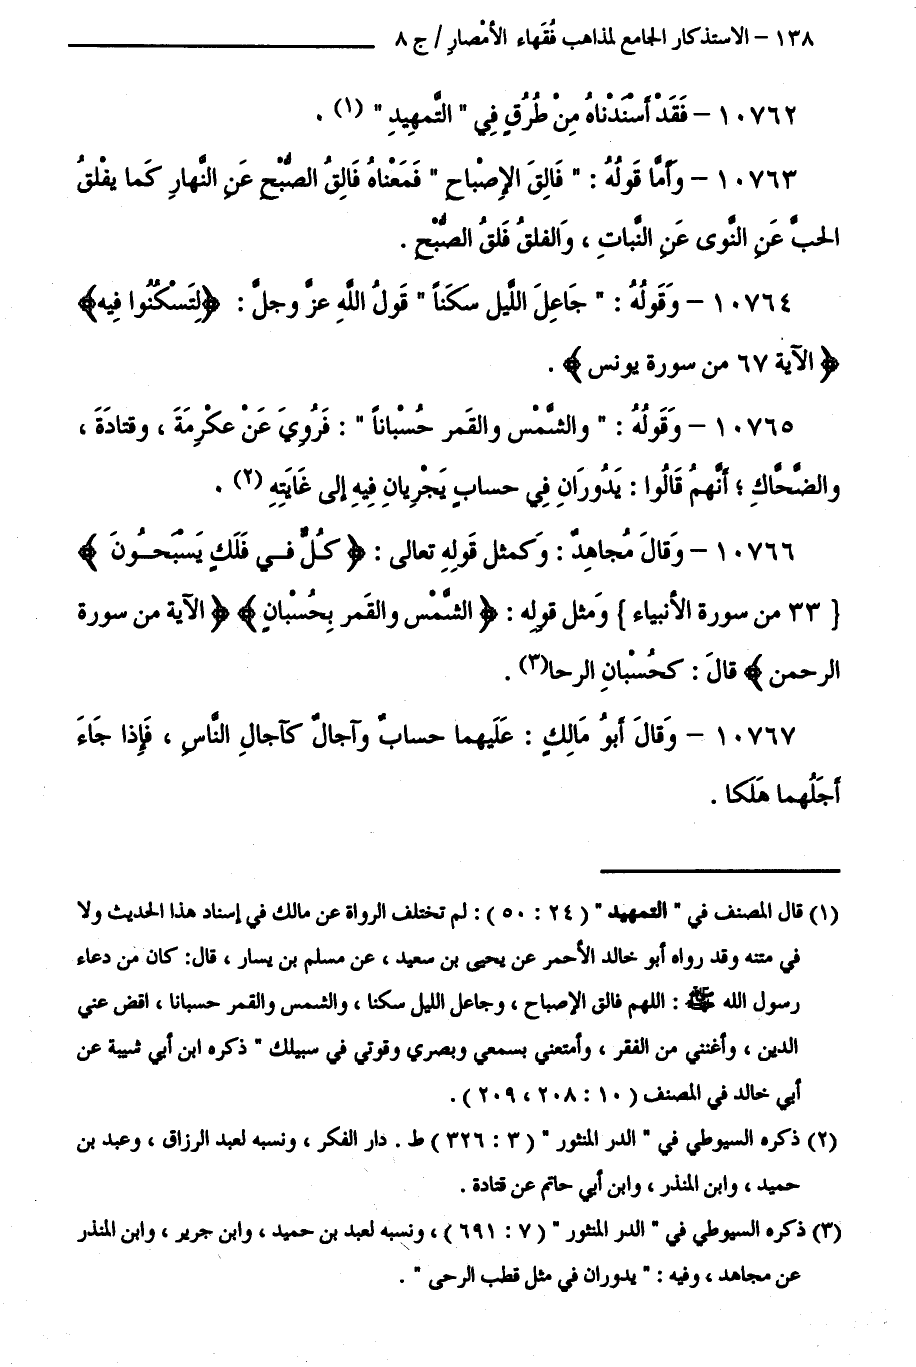 ١٣٨ – الاستذكار الجامع لمذاهب فُقَهاء الأمْصارِ / ج ٨
١٠٧٦٢ – فَقَدْ أَسْنَدْناهُ مِنْ طُرُقٍ فِي " التَّمهِيدِ " (١) .
١٠٧٦٣ – وأَمَّا قَولُهُ : " فَالِقَ الإِصْباحِ " فَمَعْناهُ فَالِقُ الصُّبْحِ عَنِ النَّهارِ كَما يفْلقُ
الحبَّ عَنِ النَّوى عَنِ النَّباتِ ، وَالفلقُ فَلقُ الصُّبْحِ .
١٠٧٦٤ – وَقَولُهُ : " جَاعِلَ اللَّيل سكَنَاً " قَولُ اللَّهِ عزَّ وجلَّ : ﴿لِتَسْكُنُوا فيه﴾
﴿ الآية ٦٧ من سورة يونس ﴾ .
١٠٧٦٥ – وَقَولُهُ : " والشَّمْس والقَمر حُسْباناً " : فَرُوِيَ عَنْ عكْرِمَةَ ، وقتادَةَ ،
والضَّحَّاكِ ؛ أَنَّهمُ قَالُوا : يَدُورَانِ فِي حسابٍ يَجْرِيانِ فِيهِ إلى غَايَتِهِ (٢) .
١٠٧٦٦ – وَقالَ مُجاهِدٌ : وَكمثل قَولِهِ تعالى : ﴿ كُلٌّ فـي فَلَكٍ يَسْبَحـونَ ﴾
{ ٣٣ من سورة الأنبياء } وَمثل قولِه : ﴿ الشَّمْس والقَمر بِحُسْبانٍ﴾ ﴿ الآية من سورة
الرحمن ﴾ قالَ : كحُسْبانِ الرحا(٣) .
١٠٧٦٧ – وَقالَ أَبوُ مَالِكٍ : عَلَيهما حسابٌ وآجالٌ كآجالِ النَّاسِ ، فَإِذا جَاءَ
أجَلُهما هَلَكا .
(١) قال المصنف في " التمهيد " ( ٢٤ : ٥٠ ) : لم تختلف الرواة عن مالك في إسناد هذا الحديث ولا
في متنه وقد رواه أبو خالد الأحمر عن يحيى بن سعيد ، عن مسلم بن يسار ، قال: كان من دعاء
رسول الله ﷺ : اللهم فالق الإصباح ، وجاعل الليل سكنا ، والشمس والقمر حسبانا ، اقض عني
الدين ، وأغنني من الفقر ، وأمتعني بسمعي وبصري وقوتي في سبيلك " ذكره ابن أبي شيبة عن
أبي خالد في المصنف ( ١٠ : ٢٠٨ ، ٢٠٩ ) .
(٢) ذكره السيوطي في " الدر المنثور " ( ٣ : ٣٢٦ ) ط . دار الفكر ، ونسبه لعبد الرزاق ، وعبد بن
حميد ، وابن المنذر ، وابن أبي حاتم عن قتادة .
(٣) ذكره السيوطي في " الدر المنثور " ( ٧ : ٦٩١ ) ، ونسبه لعبد بن حميد ، وابن جرير ، وابن المنذر
عن مجاهد ، وفيه : " يدوران في مثل قطب الرحى " .